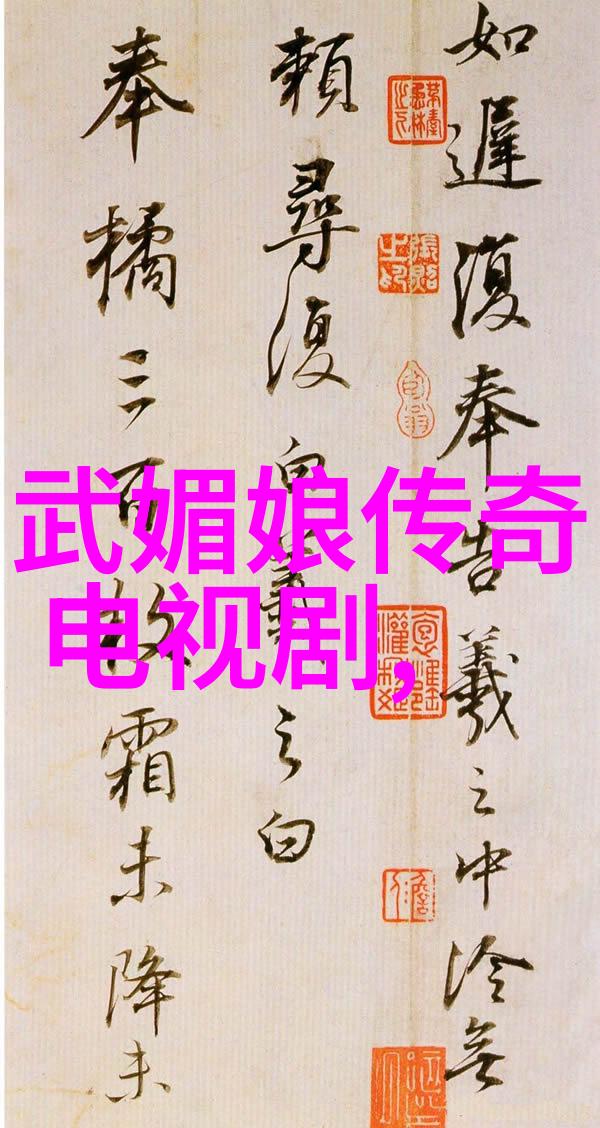 武媚娘传奇
电视剧,
如遲復奉告羲之中冷無
賴尋復白羲之白
奉橘三百枚霜未降未